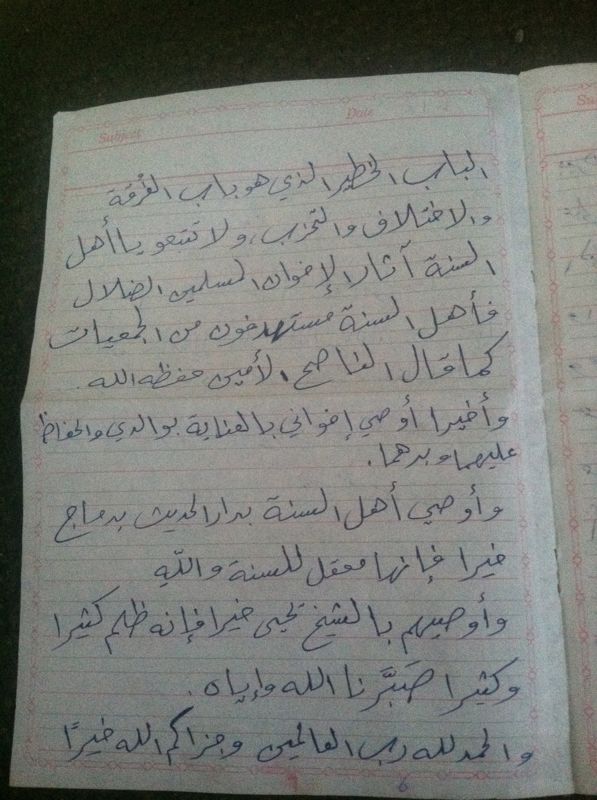 Subject
Date
الباب الخطير الذي هو باب الفُرْقة
والاختلاف والتحزب، ولا تتبعو يا أهل
السنة آثار الإخوان المسلمين الضلال
فأهل السنة مستهدفون من الجمعيات
كما قال الناصح الأمين حفظه الله.
وأخيرا أوصي إخواني بالعناية بوالدي والحفاظ
عليهما وبرهما.
وأوصي أهل السنة بدار الحديث بدماج
خيرا فإنها معقل للسنة والله
وأوصيهم بالشيخ يحيى خيرا فإنه ظلم كثيرا
وكثيرا صَبَّرنا الله وإياه.
والحمد لله رب العالمين وجزاكم الله خيرًا